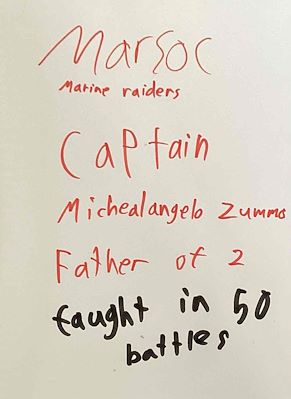 Marsoc
Marine raiders
Captain
Michealangelo Zummo
Father of 2
faught in 50
battles